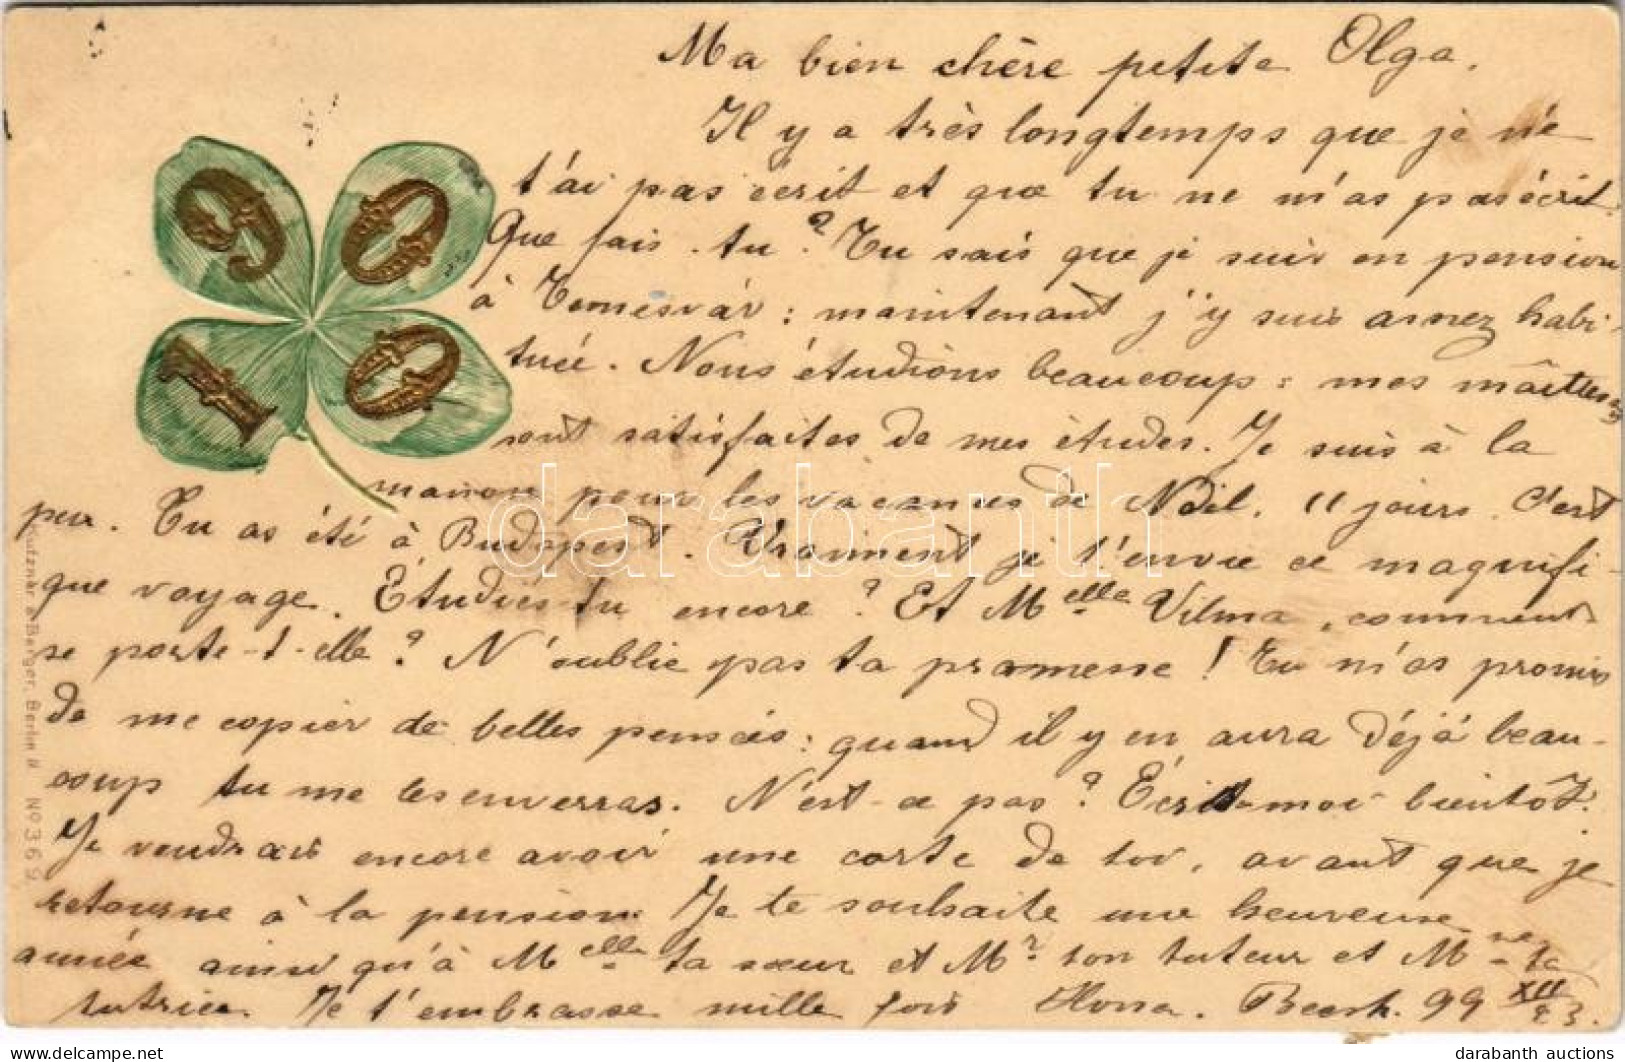 Ma bien chère petite Olga.
Il y a très longtemps que je ne
t'ai pas écrit et que tu ne m'as pas écrit.
Que fais-tu? Tu sais que je suis en pension
à Temesvár: maintenant j'y suis assez habi-
tuée. Nous étudions beaucoup: mes maîtresses
sont satisfaites de mes études. Je suis à la
maison pour les vacances de Noël. 11 jours. C'est
peu. Tu as été à Budapest. Vraiment je t'envie ce magnifi-
que voyage. Étudies-tu encore? Et Melle Vilma, comment
se porte-t-elle? N'oublie pas ta promesse! Tu m'as promis
de me copier de belles pensées: quand il y en aura déjà beau-
coup tu me les enverras. N'est-ce pas? Écrit-moi bientôt.
Je voudrais encore avoir une carte de toi, avant que je
retourne à la pension. Je te souhaite une heureuse
année ainsi qu'à Melle ta sœur et Mr ton tuteur et Mme ta
tutrice. Je t'embrasse mille fois Ilona. 99 XII
23.
1900
Kutzner & Berger, Berlin II No 369
darabanth
delcampe.net
darabanth auctions